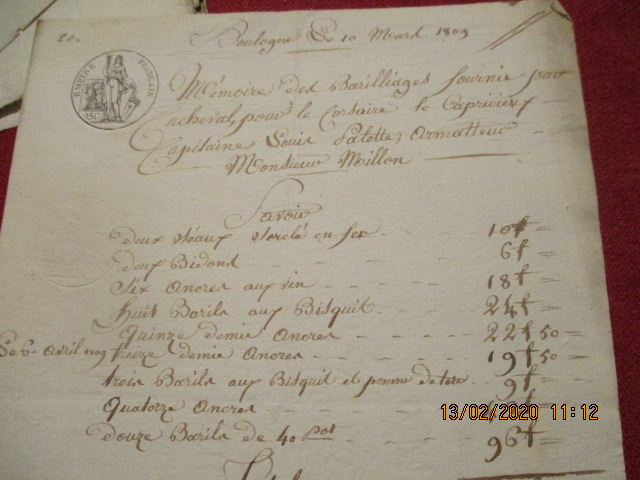 20.
Boulogne Le 10 Mars 1809
EMPIRE FRANÇAIS
25C
Mémoire des Barilliages fournis par
acheval, pour le Corsaire le Capricieux
Capitaine Louis armatteur
Monsieur Moillon
Savoir
deux séaux serclé en fer 10f
deux Bidons 6f
Six ancres aux vin 18f
huit Barils aux Bisquit 24f
quinze demie ancres 22f 50
Le avril treize demie ancres 19f 50
trois Barils aux Bisquit et pomme de 9f
quatorze ancres
13/02/2020 11:12
douze Barils de 40 pot 96f